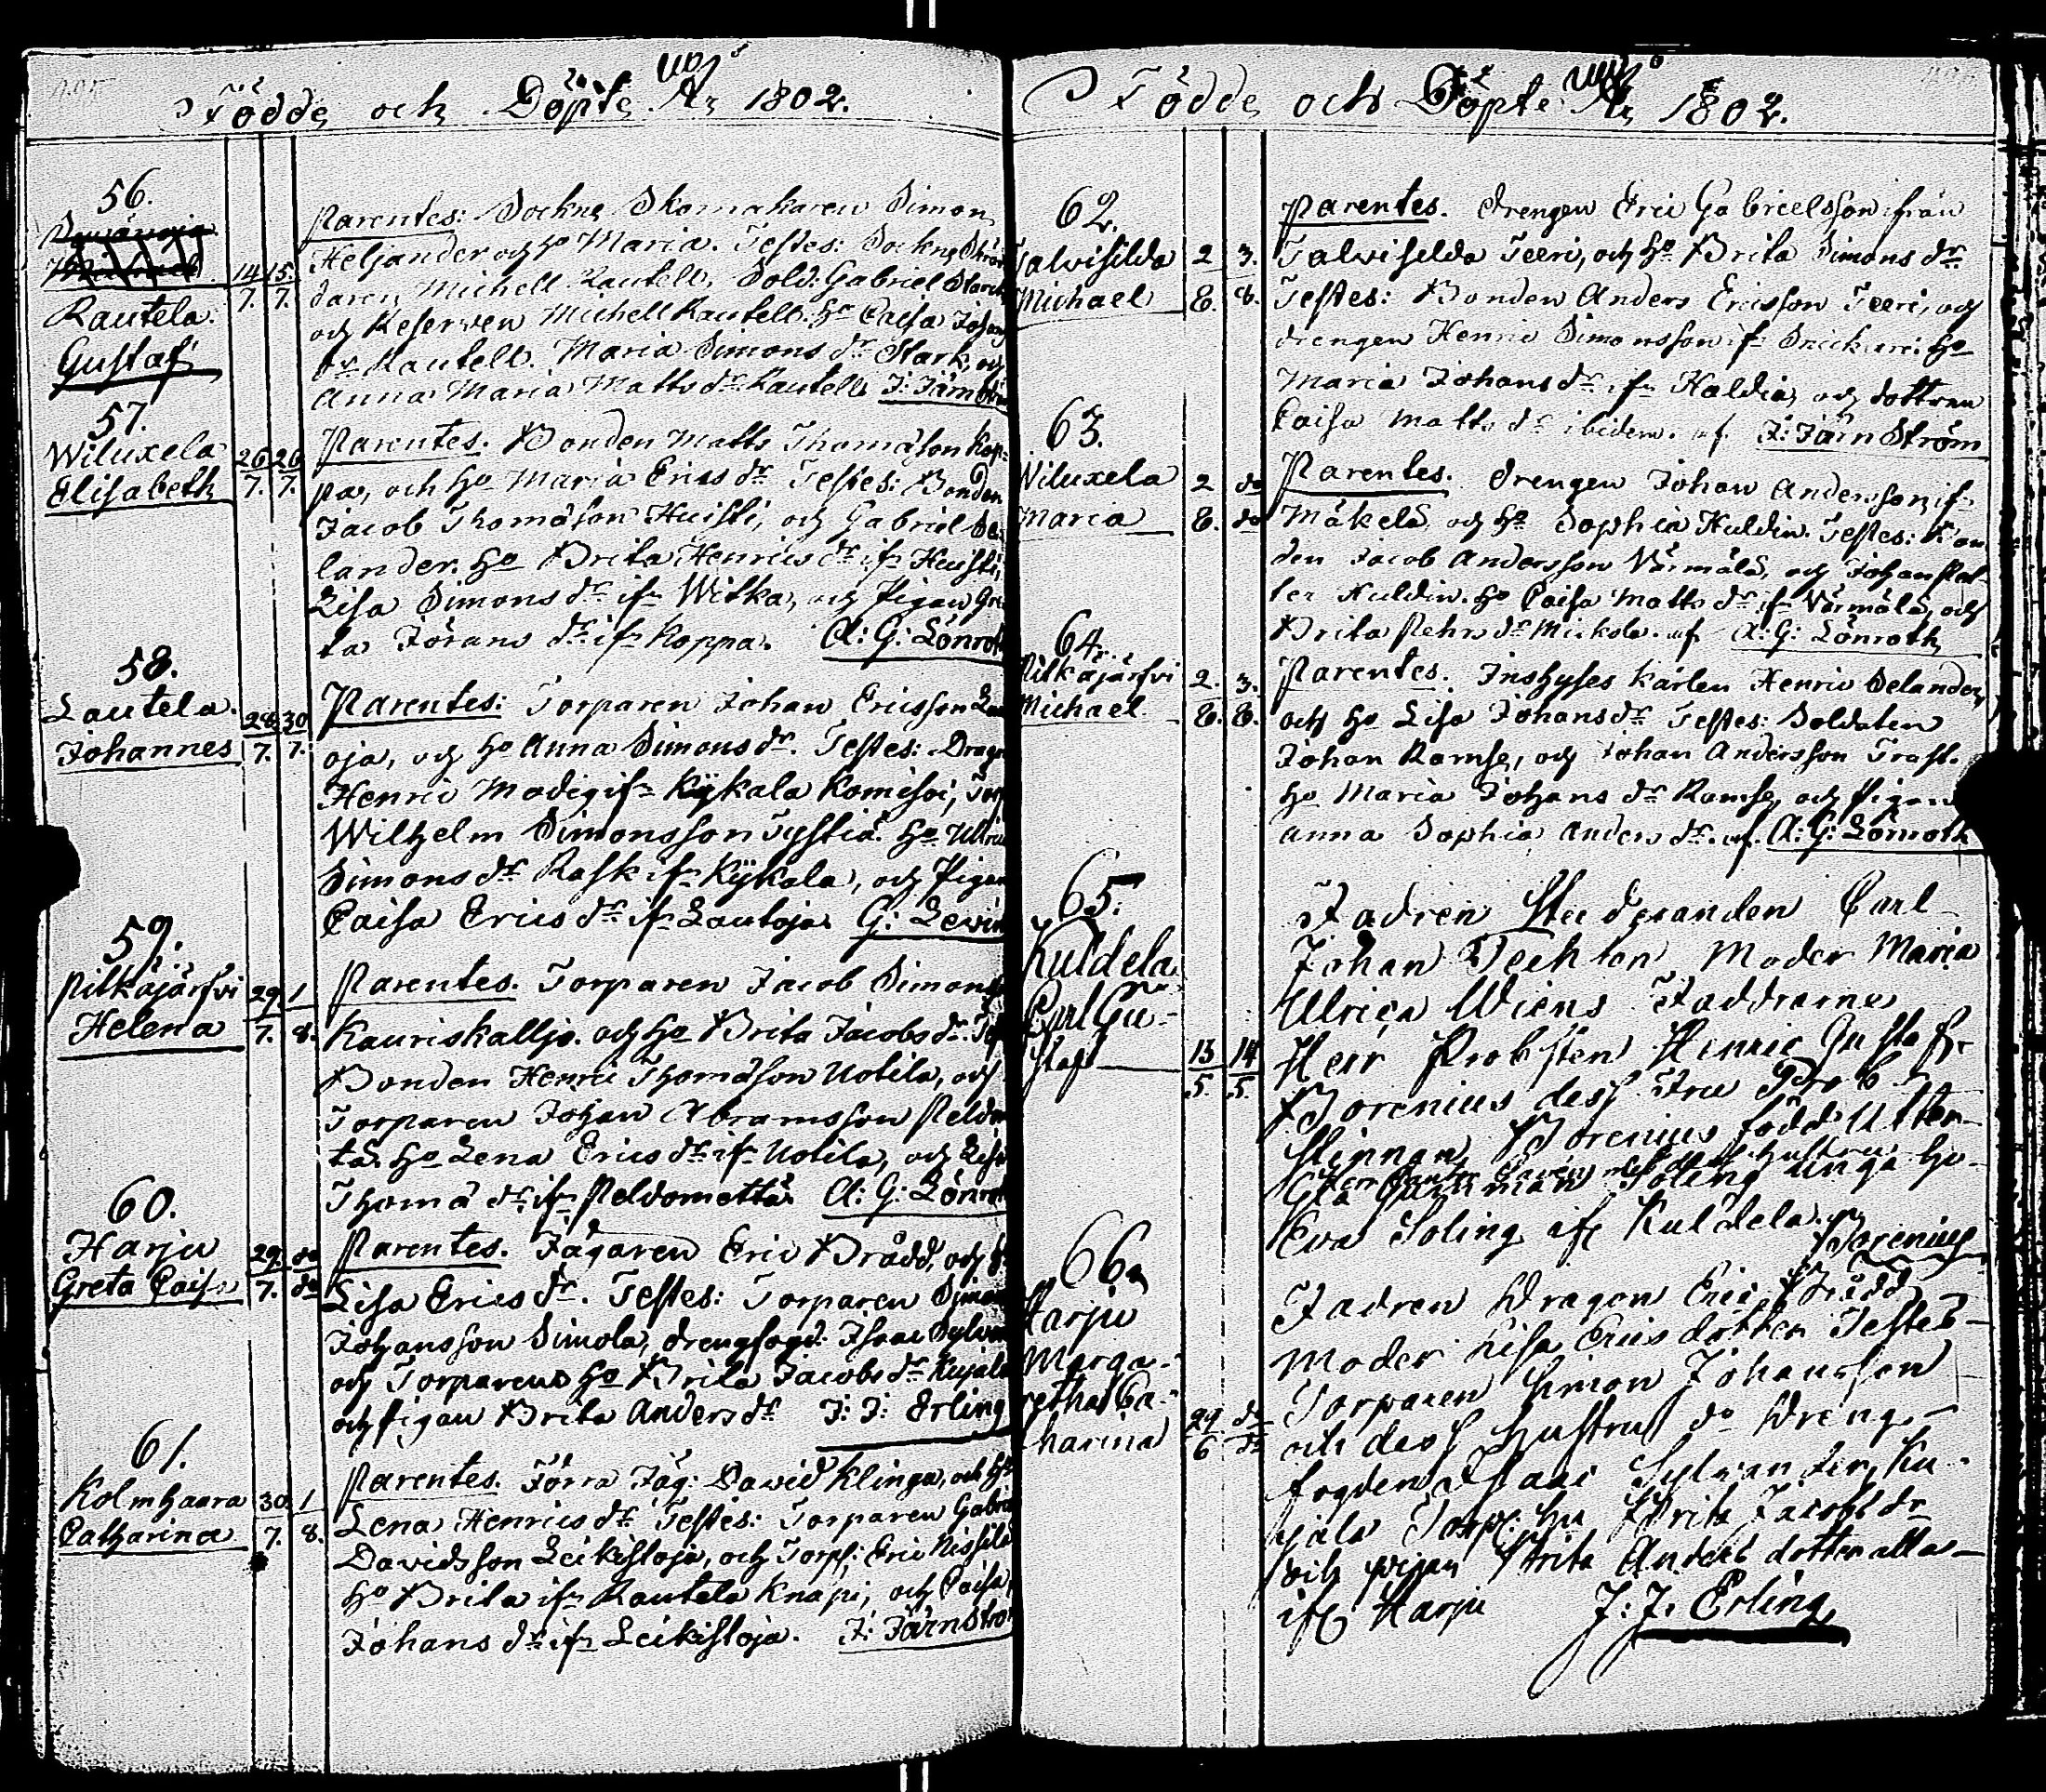 Födde och Döpte Åhr 1802.
56.
Rautela.
Gustaf
14 15
7. 7.
Parentes: Sockne Skomakaren Simon
Heljander och ho Maria. Testes: Sockne Skräd
daren Michell Rautell, Sold: Gabriel Stark
och Reserven Michell Rautell. ho Caisa Johans
dr Rautell. Maria Simons dr Stark, och
Anna Maria Matts dr Rautell J: Järnströ
57.
Wiluxela
Elisabeth
26 26
7. 7.
Parentes. Bonden Matts Thomæson Kop-
pa, och ho Maria Erics dr Testes: Bonden
Jacob Thomæson Huisti, och Gabriel Se-
lander. ho Brita Henrics dr ifr Huisti,
Lisa Simons dr ifr Witka, och Pigan Gre-
ta Jörans dr ifr Koppa. A: G: Lönroth
58.
Lautela.
Johannes
28 30
7. 7.
Parentes: Torparen Johan Ericsson Lau
oja, och ho Anna Simons dr. Testes: Drag
Henric Modig ifr Kÿkala Komisoi, Torp
Wilhelm Simonsson Tystiä. ho Ulrica
Simons dr Rask ifr Kÿkala, och Pigan
Caisa Erics dr ifr Lautoja. G: Levin
59.
Pitkäjärfvi
Helena
29. 1
7. 8.
Parentes. Torparen Jacob Simons
Kauriskallio. och ho Brita Jacobs dr. Test
Bonden Henric Thomæson Uotila, och
Torparen Johan Abramsson Peldo
tä. ho Lena Erics dr ifr Uotila, och Lisa
Thomæ dr ifr Peldomättä A: G: Lönroth
60.
Harju
Greta Caisa
29. do
7. do
Parentes. Jägaren Eric Brådd, och ho
Lisa Erics dr. Testes: Torparen Simon
Johansson Simola, drengfogd: Isaac Sylvan
och Torparens ho Brita Jacobs dr Kujala
och Pigan Brita Anders dr J: J: Erling
61.
Kolmhaara
Catharina
30. 1
7. 8.
Parentes. Förra Jäg: David Klinga, och ho
Lena Henrics dr Testes: Torparen Gabriel
Davidsson Leikistoja, och Torp: Eric Nissilä
ho Brita ifr Rautela Knapi, och Caisa
Johans dr ifr Leikistoja. J: Järnströ
Födde och Döpte Åhr 1802.
62.
Talvisilda
Michael
2 3.
8. 8.
Parentes. drengen Eric Gabrielsson ifrån
Talvisilda Teeri, och ho Brita Simons dr.
Testes: Bonden Anders Ericsson Teeri, och
drengen Henric Simonsson ifr ho
Maria Johans dr ifr Haldia, och dottren
Caisa Matts dr ibidem. af. J: Järnström
63.
Wiluxela
Maria
2 do
8. do
Parentes. drengen Johan Andersson ifr
Mäkelä, och ho Sophia Huldin. Testes: Bon
den Jacob Andersson Wärmälä, och Johan Pet-
ter Huldin. ho Caisa Matts dr ifr Wärmälä, och
Brita Pehrs dr Mickola. af A: G: Lönroth
64.
Pitkäjärfvi
Michael
2. 3.
8. 8.
Parentes. Inhyses karlen Henric Selander,
och ho Lisa Johans dr Testes: Soldaten
Johan Ramse, och Johan Andersson Trast.
ho Maria Johans dr Ramse, och Pigan
Anna Sophia Anders dr. af. A: G: Lönroth
65.
Kuldela
Carl Gu-
staf
13 14
5. 5.
Fadren Studeranden Carl
Johan Techton Moder Maria
Ulrica Wiens Faddrarne
Herr Probsten Henric Gustaf
Borenius dess Fru Prob-
stinnan Borenius född Utter-
Soling unga ho-
Eva Soling ifr Kuldela.
Borenius
66.
Harju
Marga-
retha Ca-
tharina
29 do
6 do
Fadren Dragon Eric Brådd
Moder Lisa Erics dotter Testes
Torparen Simon Johansson
och dess hustru do Dreng-
fogden Isaac Sylvander, Ku-
jala Torp: hu Brita Jacobs dr
och pigan Brita Anders dotter alla
ifr Harju J: J: Erling